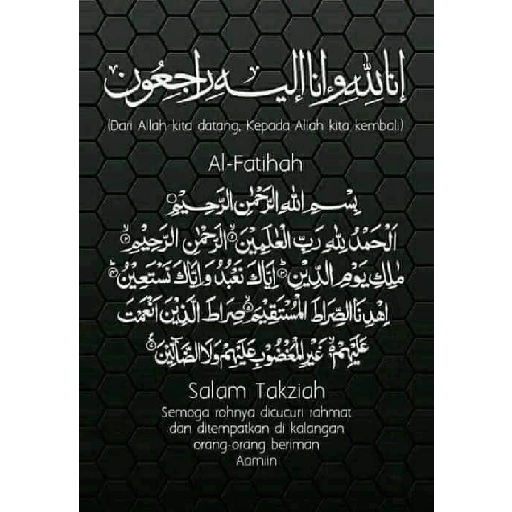 إنا لله وإنا إليه راجعون
(Dari Allah kita datang, Kepada Allah kita kembali)
Al-Fatihah
بِسْمِ اللهِ الرَّحْمٰنِ الرَّحِيْمِ
اَلْحَمْدُ لِلّٰهِ رَبِّ الْعٰلَمِيْنَ الرَّحْمٰنِ الرَّحِيْمِ
مٰلِكِ يَوْمِ الدِّيْنِ اِيَّاكَ نَعْبُدُ وَاِيَّاكَ نَسْتَعِيْنُ
اِهْدِنَا الصِّرَاطَ الْمُسْتَقِيْمَ صِرَاطَ الَّذِيْنَ اَنْعَمْتَ
عَلَيْهِمْ غَيْرِ الْمَغْضُوْبِ عَلَيْهِمْ وَلَا الضَّآلِّيْنَ
Salam Takziah
Semoga rohnya dicucuri rahmat
dan ditempatkan di kalangan
orang-orang beriman
Aamiin